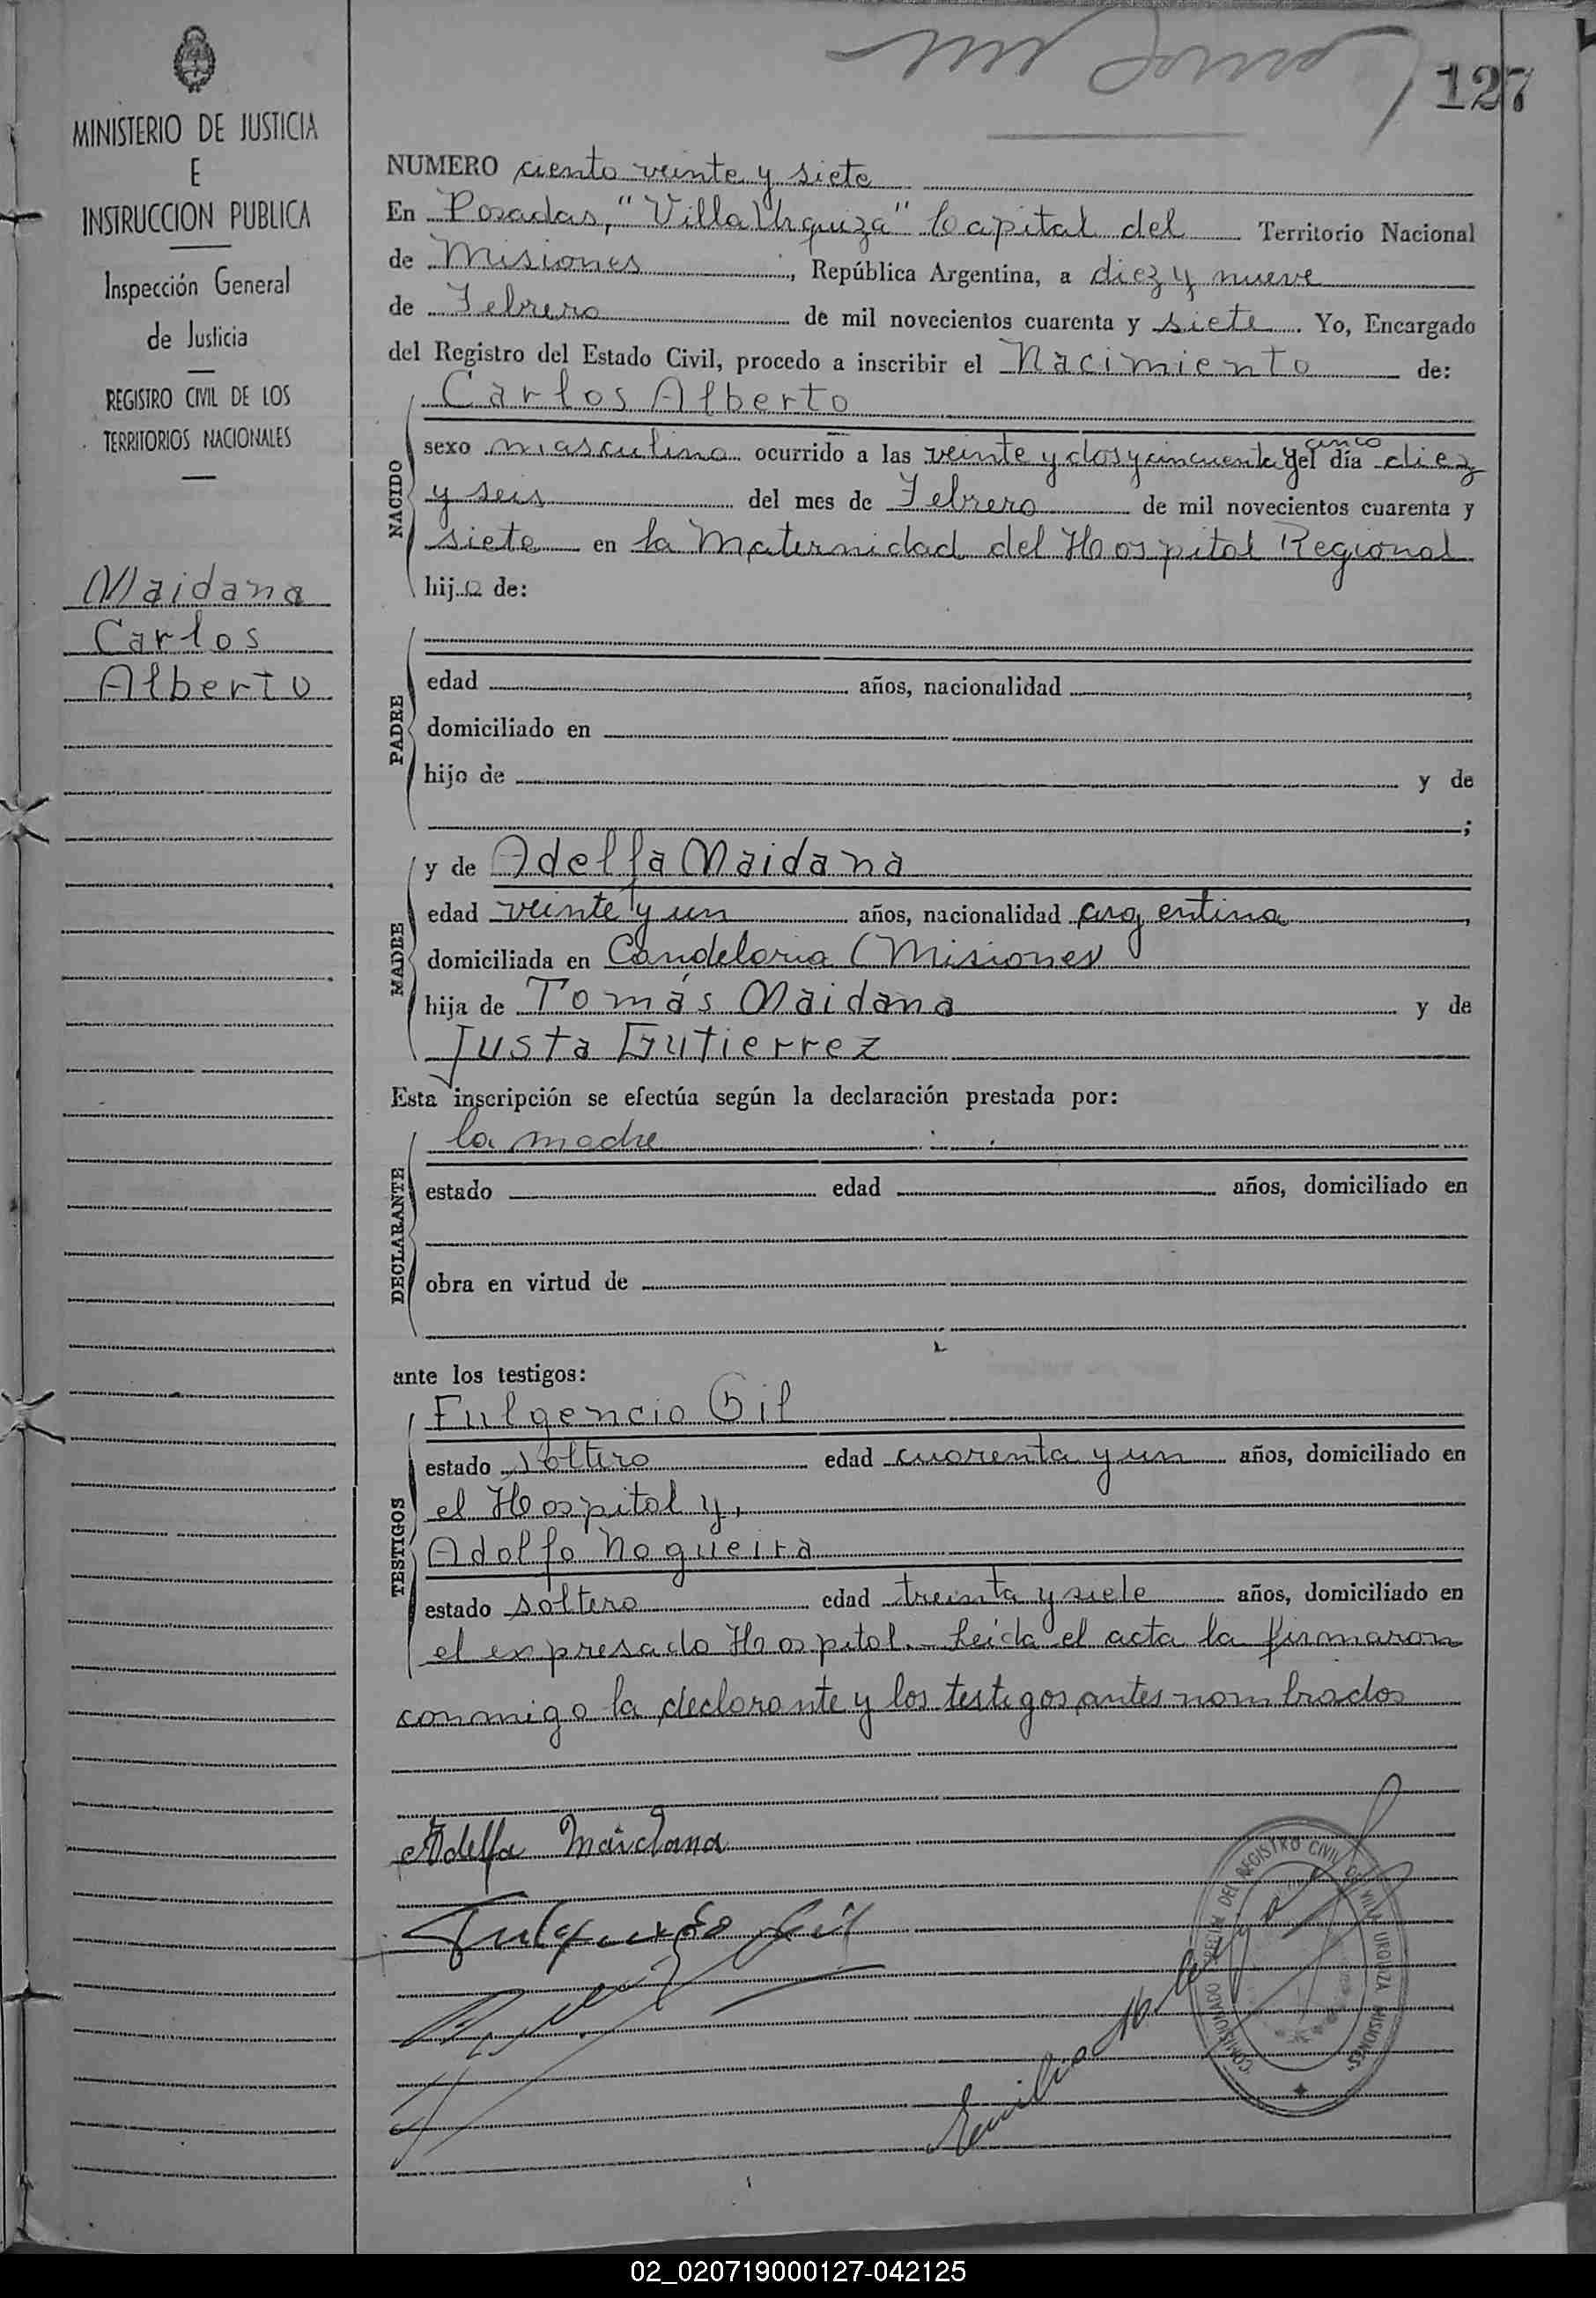 127
MINISTERIO DE JUSTICIA
E
INSTRUCCION PUBLICA
Inspección General
de Justicia
REGISTRO CIVIL DE LOS
TERRITORIOS NACIONALES
Maidana
Carlos
Alberto
NUMERO ciento veinte y siete
En Posadas, "Villa Urquiza" Capital del Territorio Nacional
de Misiones, República Argentina, a diez y nueve
de Febrero de mil novecientos cuarenta y siete. Yo, Encargado
del Registro del Estado Civil, procedo a inscribir el Nacimiento de:
Carlos Alberto
NACIDO
sexo masculino ocurrido a las veinte y dos y cincuenta y cinco del día diez
y seis del mes de Febrero de mil novecientos cuarenta y
siete en la Maternidad del Hospital Regional
hijo de:
PADRE
edad años, nacionalidad ,
domiciliado en
hijo de y de
;
MADRE
y de Adelfa Maidana
edad veinte y un años, nacionalidad argentina,
domiciliada en Candelaria (Misiones)
hija de Tomás Maidana y de
Justa Gutierrez
Esta inscripción se efectúa según la declaración prestada por:
la madre
DECLARANTE
estado edad años, domiciliado en
obra en virtud de
ante los testigos:
TESTIGOS
Fulgencio Gil
estado soltero edad cuarenta y un años, domiciliado en
el Hospital y,
Adolfo Nogueira
estado soltero edad treinta y siete años, domiciliado en
el expresado Hospital.- Leída el acta la firmaron
conmigo la declarante y los testigos antes nombrados
Adelfa Maidana
Fulgencio Gil
Emilio
DEL REGISTRO CIVIL DE VILLA URQUIZA MISIONES
COMISIONADO
02_020719000127-042125